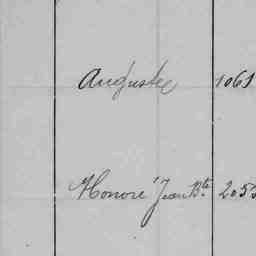 Auguste 1061
Honoré Jean Bte 205